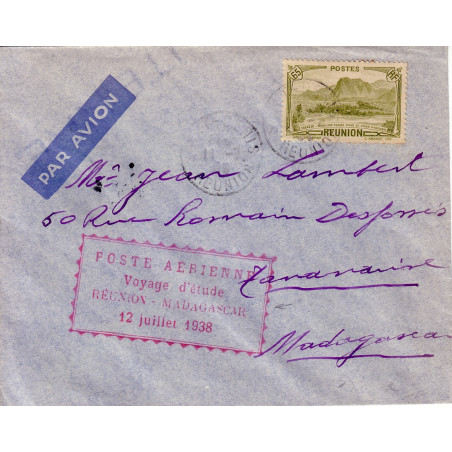 PAR AVION
65 POSTES RF
RÉUNION
RÉUNION
Jean Lambert
50 Rue Romain Desfossés
Tananarive
Madagascar
POSTE AÉRIENNE
Voyage d'étude
RÉUNION - MADAGASCAR
12 juillet 1938